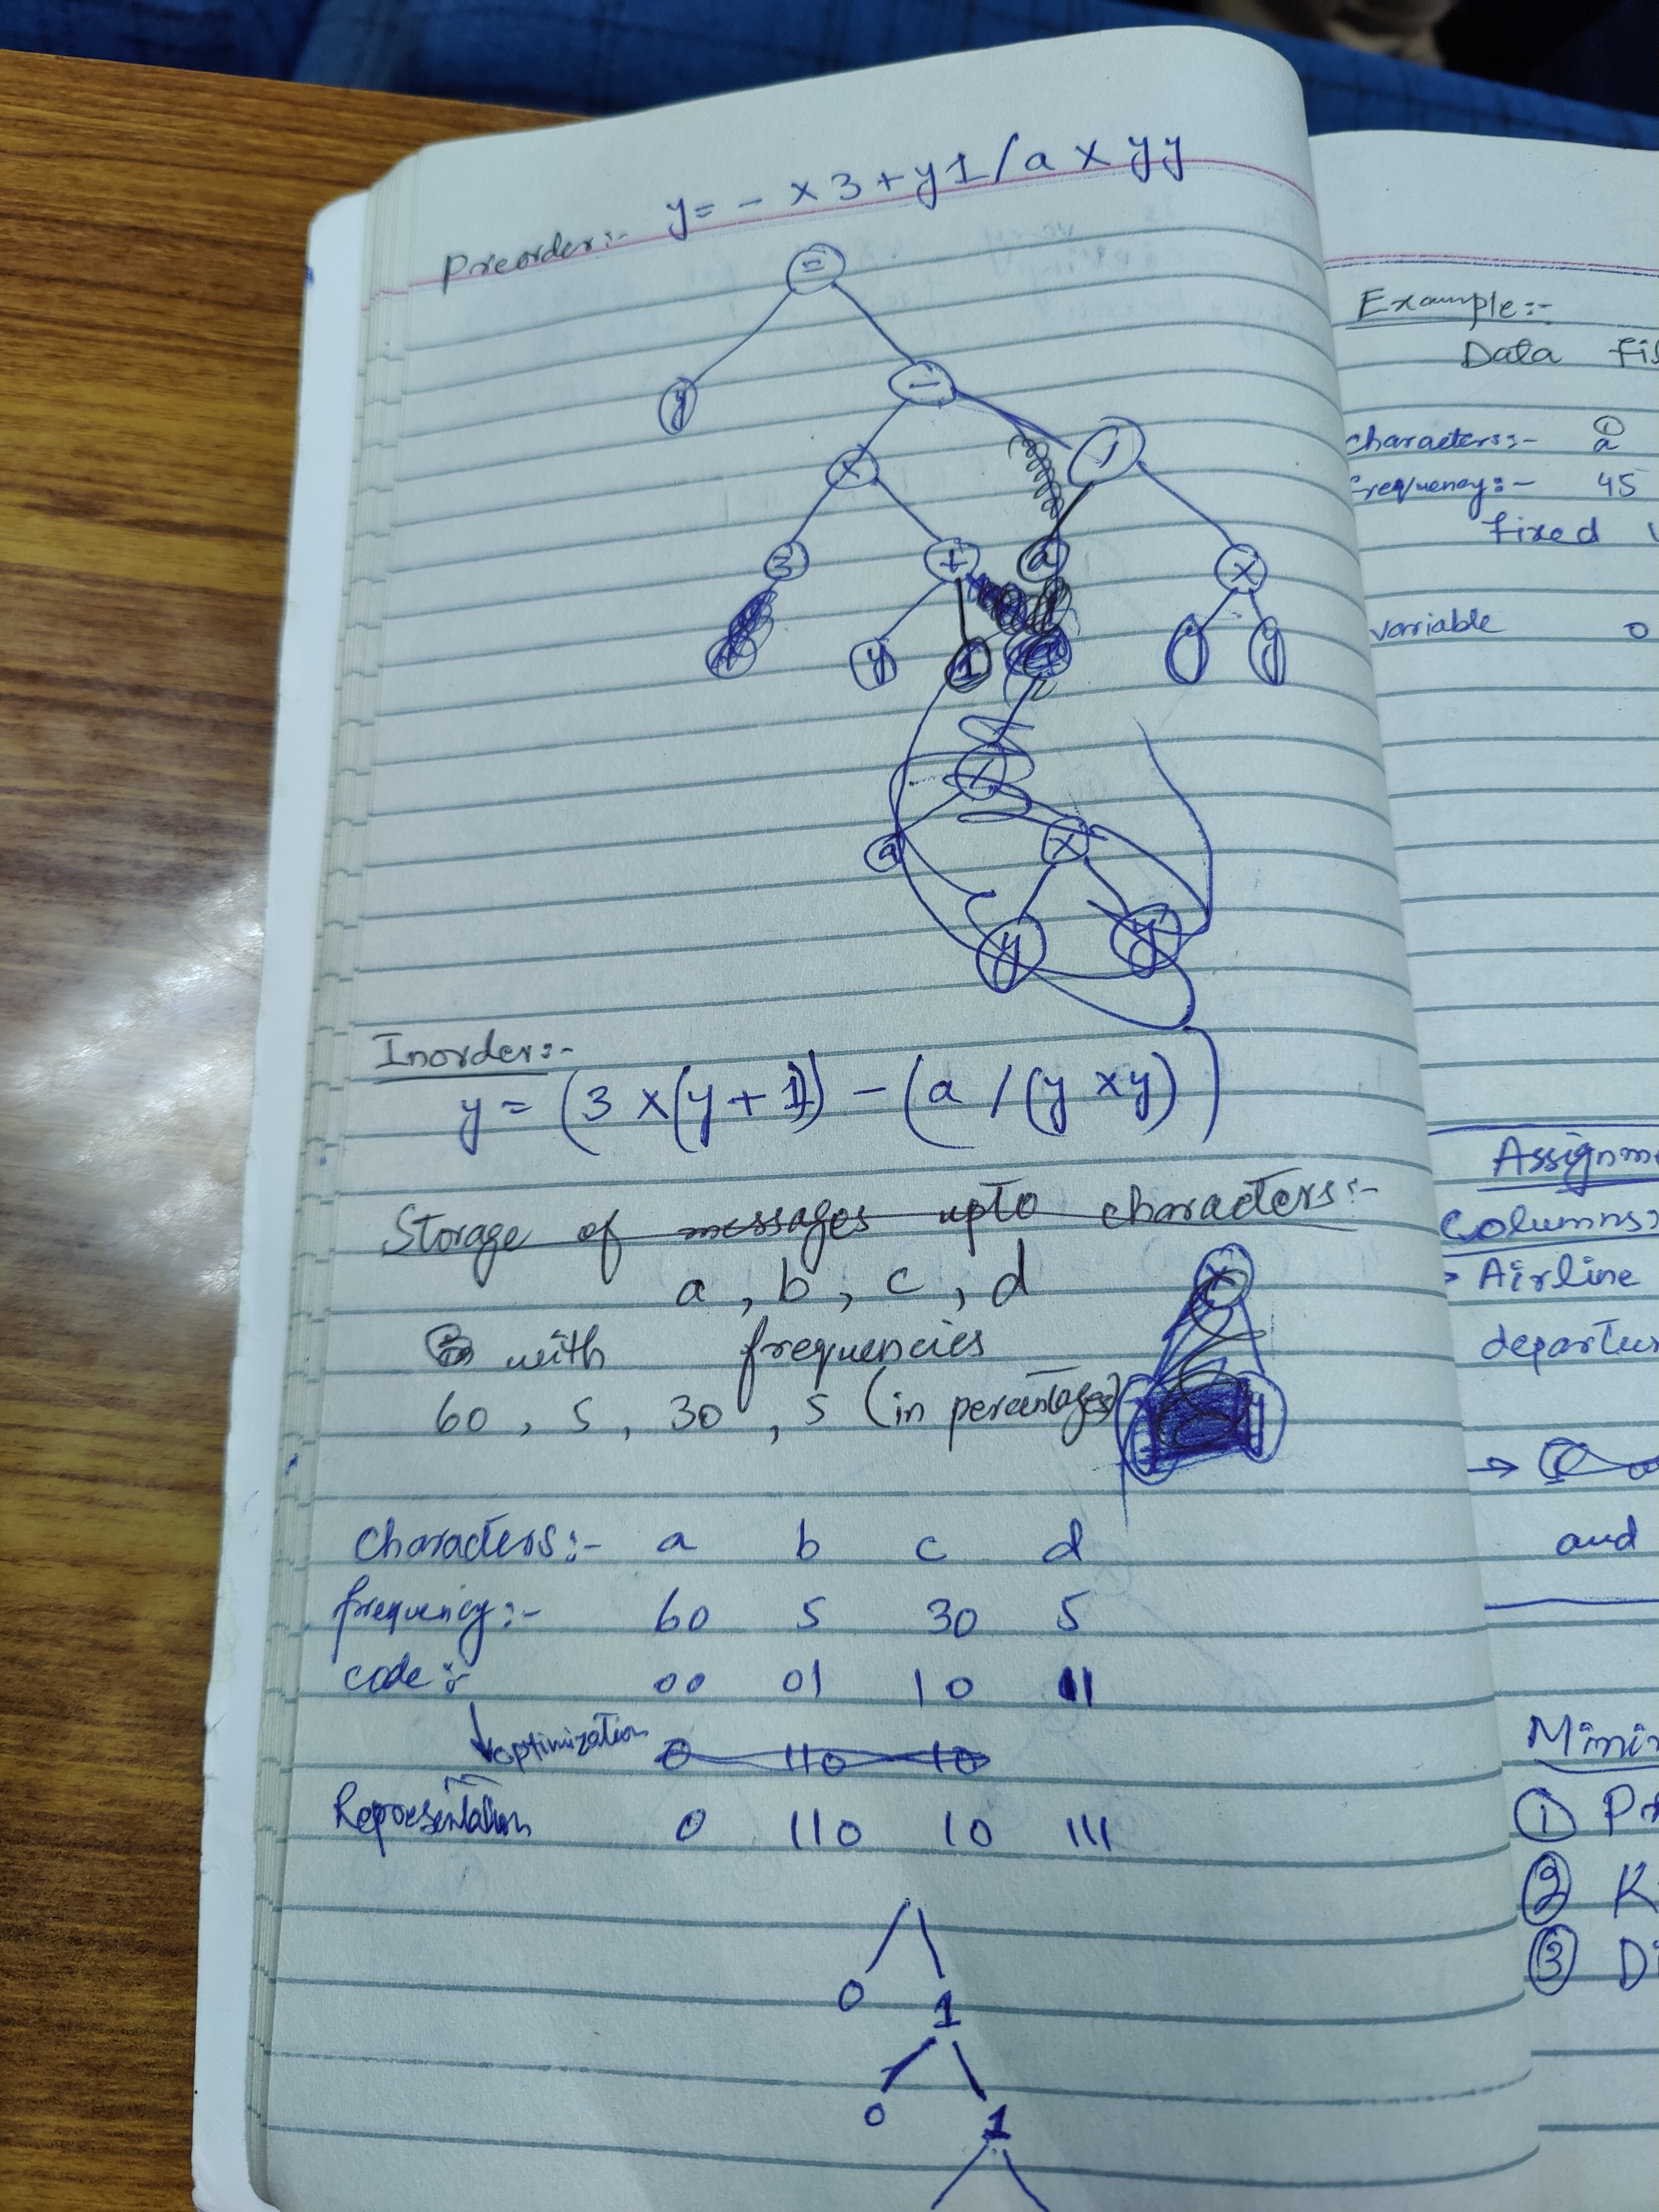 Preorder:- y = - x 3 + y 1 / a x y y
=
y -
x /
3 + a x
y 1 y
/
a x
y y
Inorder:-
y = (3 x (y + 1)) - (a / (y x y))
Storage of messages upto characters:-
a , b , c , d
with frequencies
60 , 5 , 30 , 5 (in percentages)
characters:- a b c d
frequency:- 60 5 30 5
code:- 00 01 10 11
optimization 0 110 10
Representation 0 110 10 111
0 1
0 1
Example:-
Data
characters:- ① a
frequency:- 45
fixed
variable 0
Columns:
Airline
and
①
② K
③